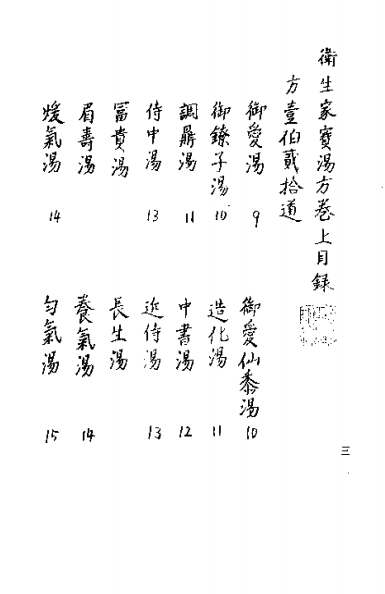 衛生家寶湯方卷上目録
方壹伯貳拾道
御愛湯 9
御愛仙黍湯 10
御鐐子湯 10
造化湯 11
調鼎湯 11
中書湯 12
侍中湯 13
近侍湯 13
富貴湯
長生湯
眉壽湯
養氣湯 14
煖氣湯 14
匀氣湯 15
三